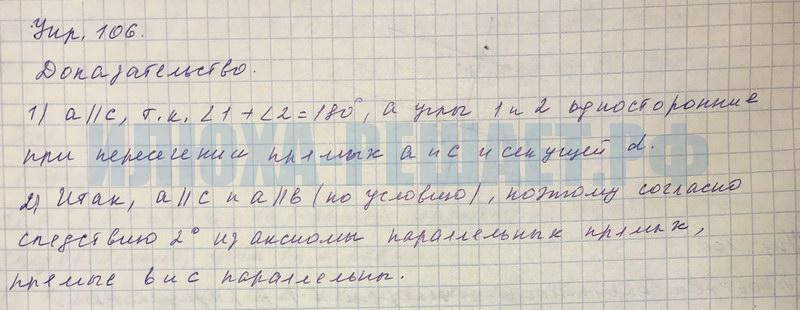 Упр. 106.
Доказательство.
1) a||c, т.к. ∠1+∠2=180°, а углы 1 и 2 односторонние
ИЛЮХА-РЕШАЕТ.РФ
при пересечении прямых a и c и секущей d.
2) Итак, a||c и a||b (по условию), поэтому согласно
следствию 2° из аксиомы параллельных прямых,
прямые b и c параллельны.